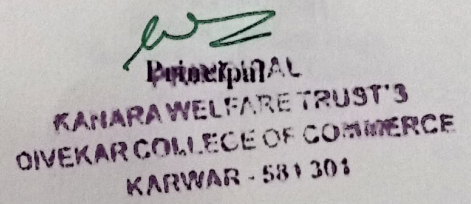 Principal
PRINCIPAL
KANARA WELFARE TRUST'S
DIVEKAR COLLEGE OF COMMERCE
KARWAR - 581 301